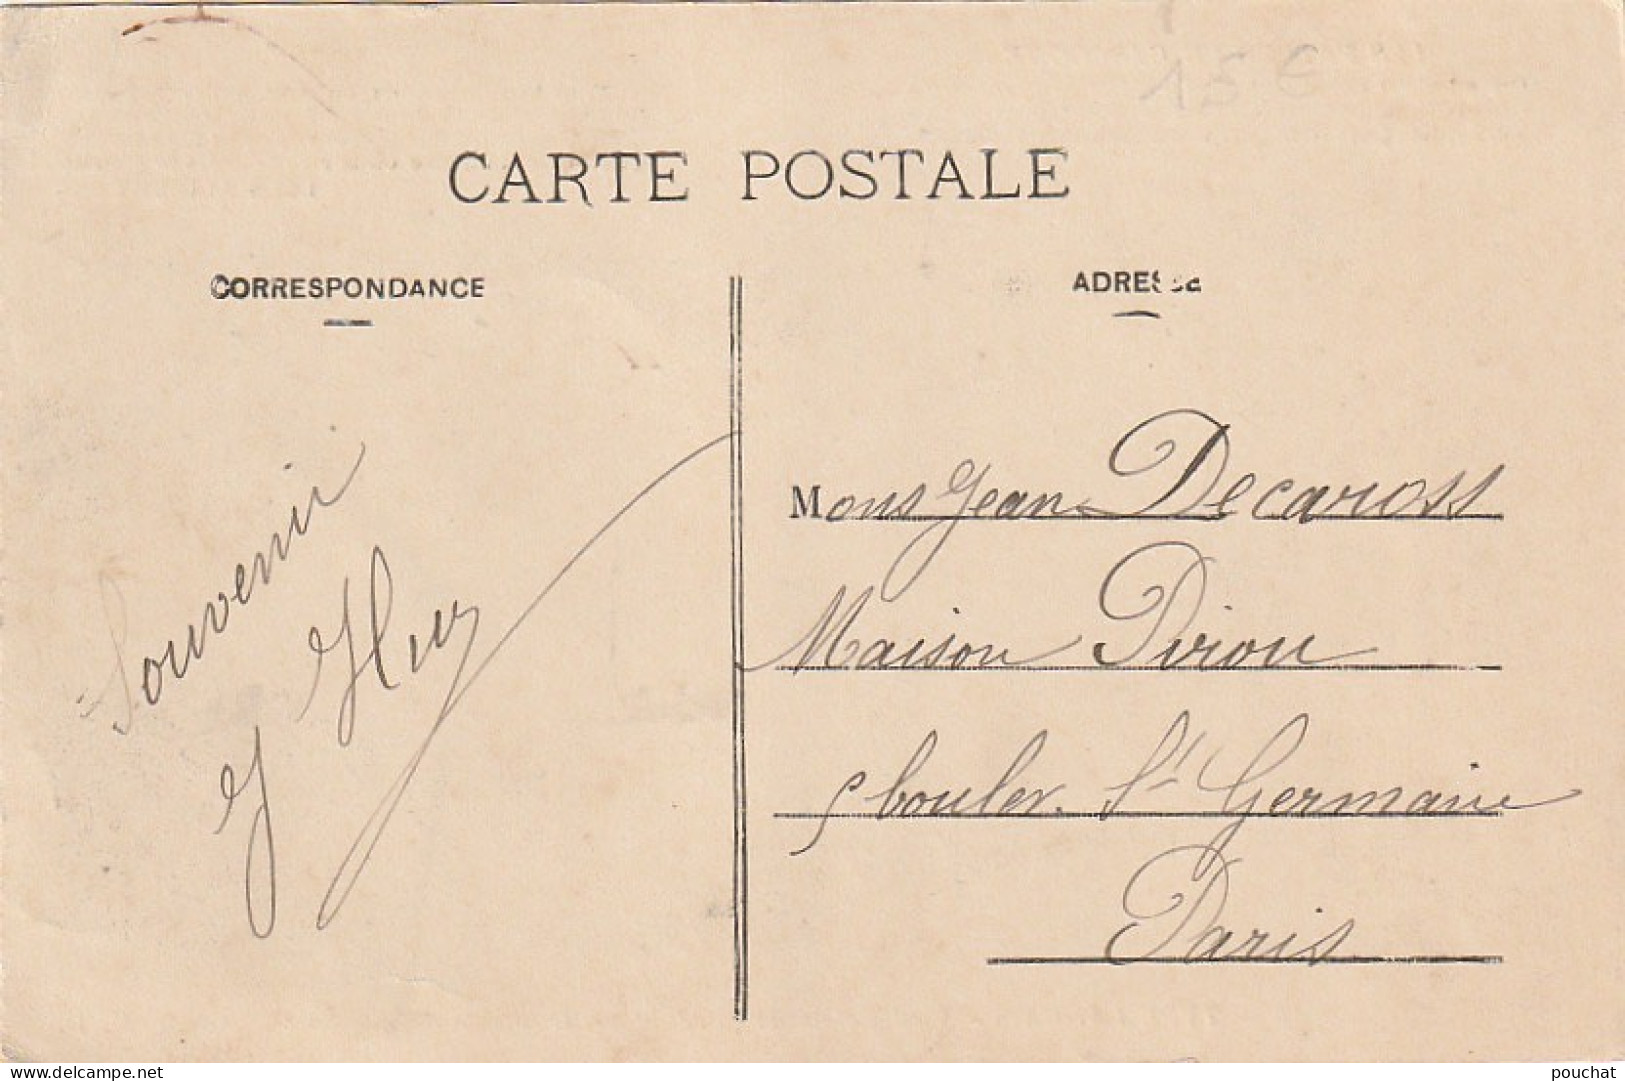 15 €
CARTE POSTALE
CORRESPONDANCE
ADRESSE
Souvenir
J Huy
Mons Jean Decaross
Maison Pirou
5 boulev. St Germain
Paris
delcampe.net
pouchat